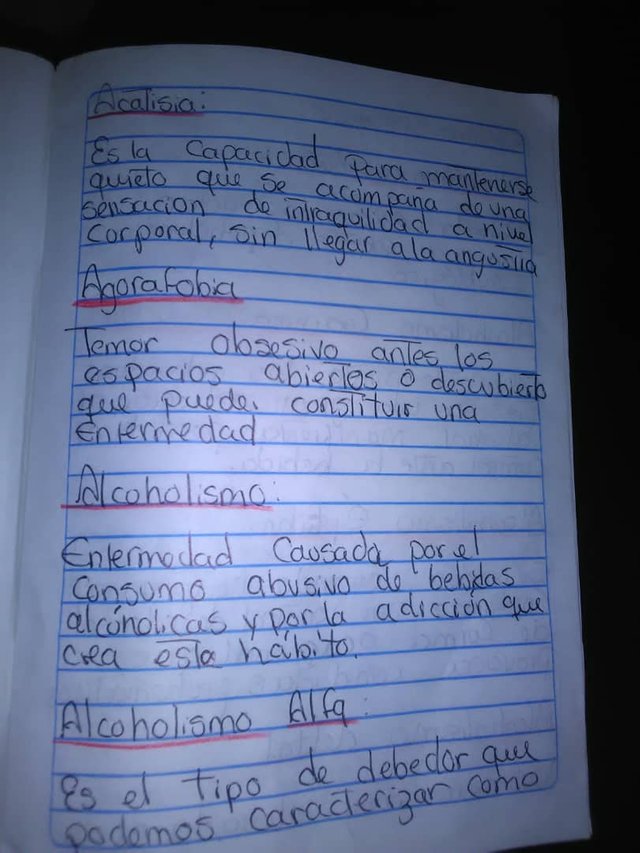 Acalisia:
Es la capacidad para mantenerse
quieto que se acompaña de una
sensacion de intraquilidad a nivel
corporal, sin llegar a la angustia
Agorafobia
Temor obsesivo antes los
espacios abiertos o descubierto
que puede, constituir una
Enfermedad
Alcoholismo:
Enfermedad Causada por el
consumo abusivo de bebidas
alcóholicas y por la adicción que
crea esta hábito.
Alcoholismo Alfa:
Es el tipo de debedor que
podemos caracterizar como